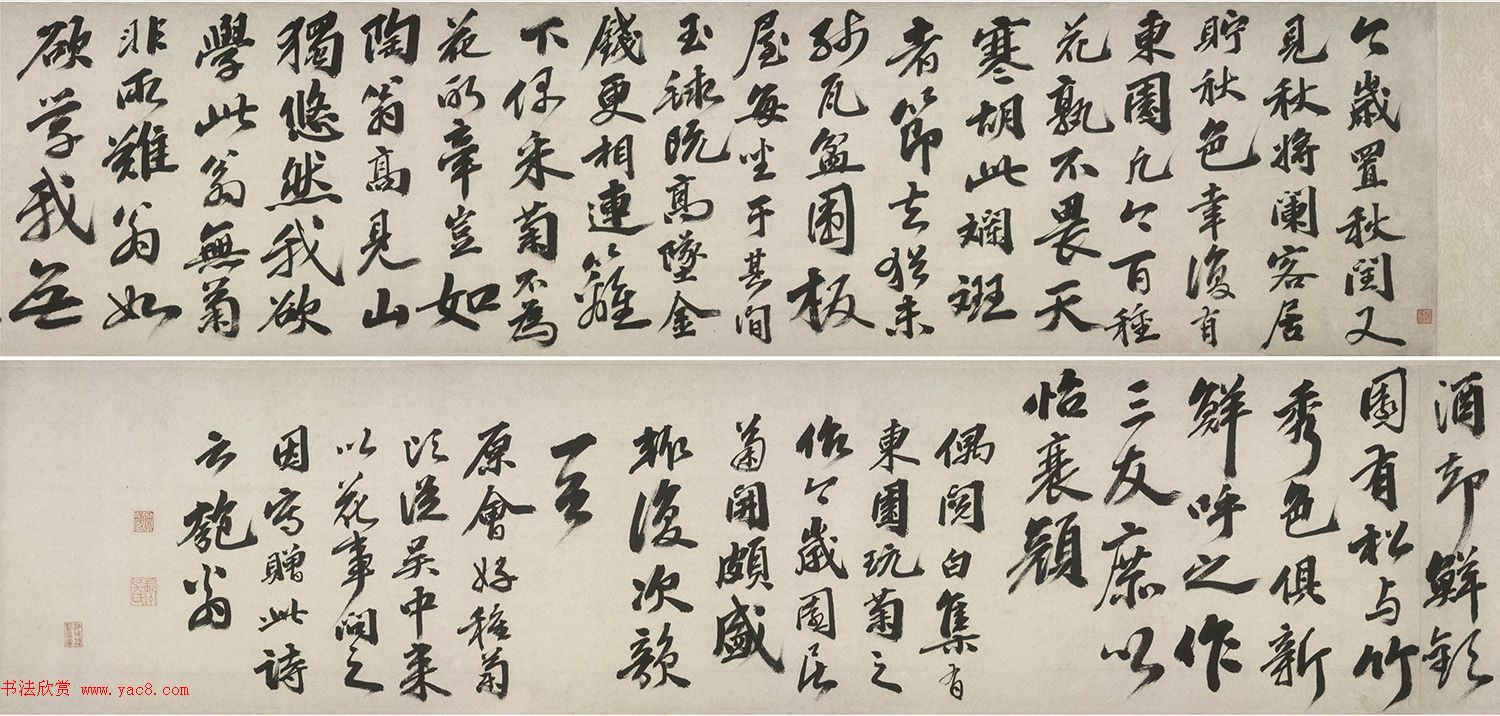 今歲置秋閏又
見秋將闌客居
貯秋色幸復有
東園凡今百種
花孰不畏天
寒胡此斕斑
者節去猶未
殘瓦盆圍板
屋每坐于其間
玉毬既高墜金
錢更相連籬
下偶采菊不為
花所牽豈如
陶翁高見山
獨悠然我欲
學此翁無菊
非所難翁如
欲學我無
酒却鮮歡
園有松与竹
秀色俱新
鮮呼之作
三友庶以
怡衰顏
偶閱白集有
東園玩菊之
作今歲園居
菊開頗盛
輒復次韻
一首
原會好種菊
頃從吳中來
以花事問之
因寫贈此詩
云匏翁
书法欣赏 www.yac8.com